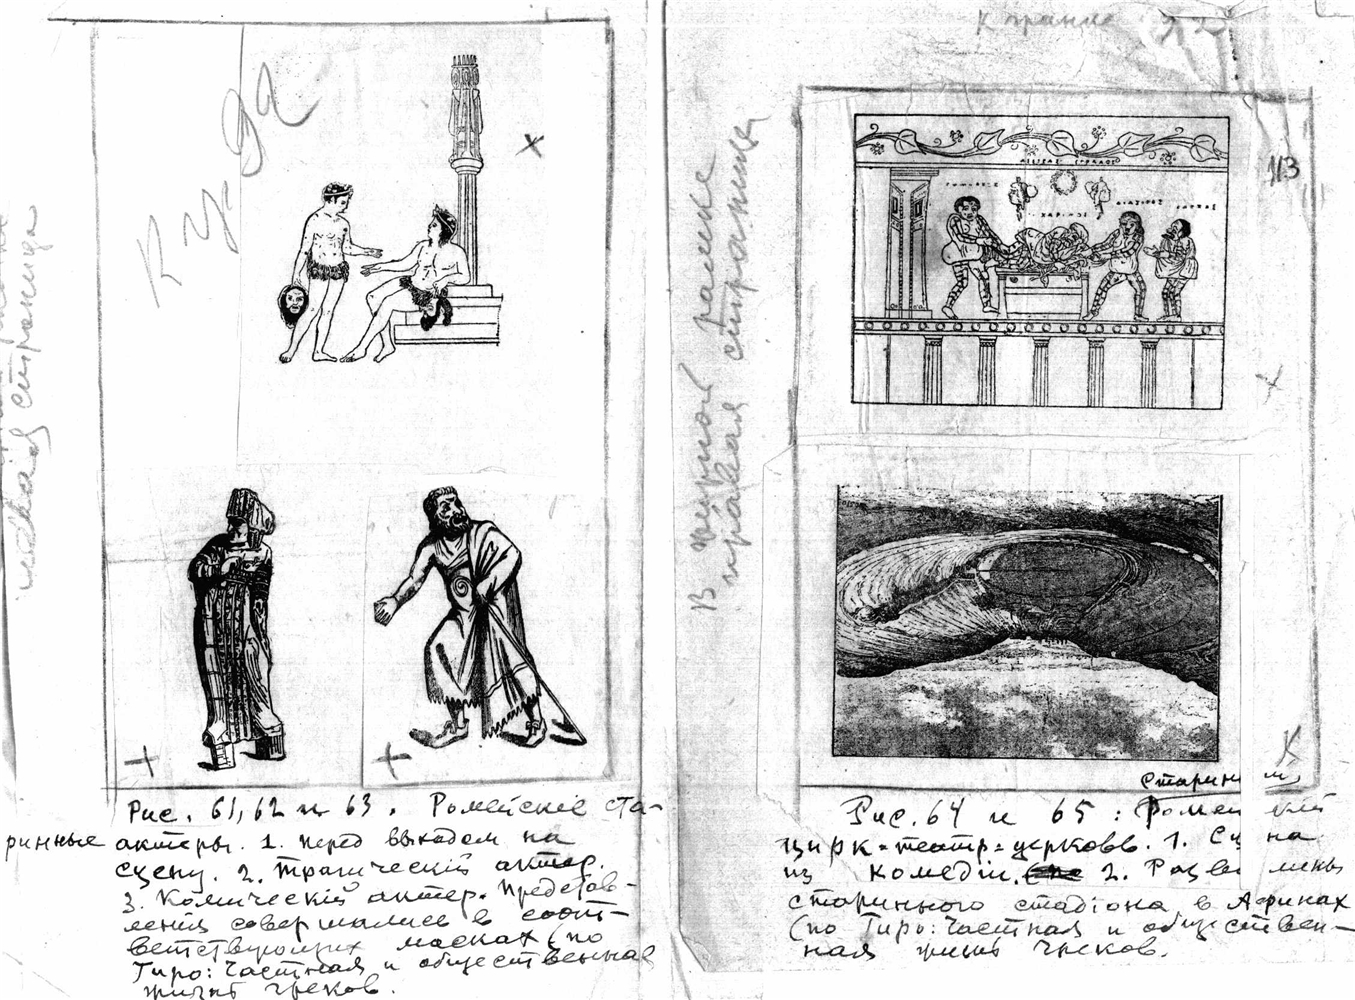 Рис. 61, 62 и 63. Ромейскіе ста-
ринные актеры. 1. перед выходом на
сцену. 2. Трагическій актер.
3. Комическій актер. Представ-
ления совершались в соот-
ветствующих масках (по
Гиро: Частная и общественная
жизнь греков.
левая страница
В жирной рамке
правая страница
К
113
Старин
Рис. 64 и 65: Ромей кій
цирк=театр=церковь. 1. Сц на
из комедіи. 2. Развалины
стариннаго стадіона в Афинах
(по Гиро: Частная и обществен-
ная жизнь греков.